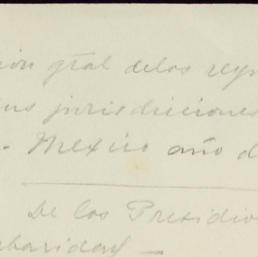 ion gral delos reyn
sus jurisdiciones
. Mexico año d
De los Presidio